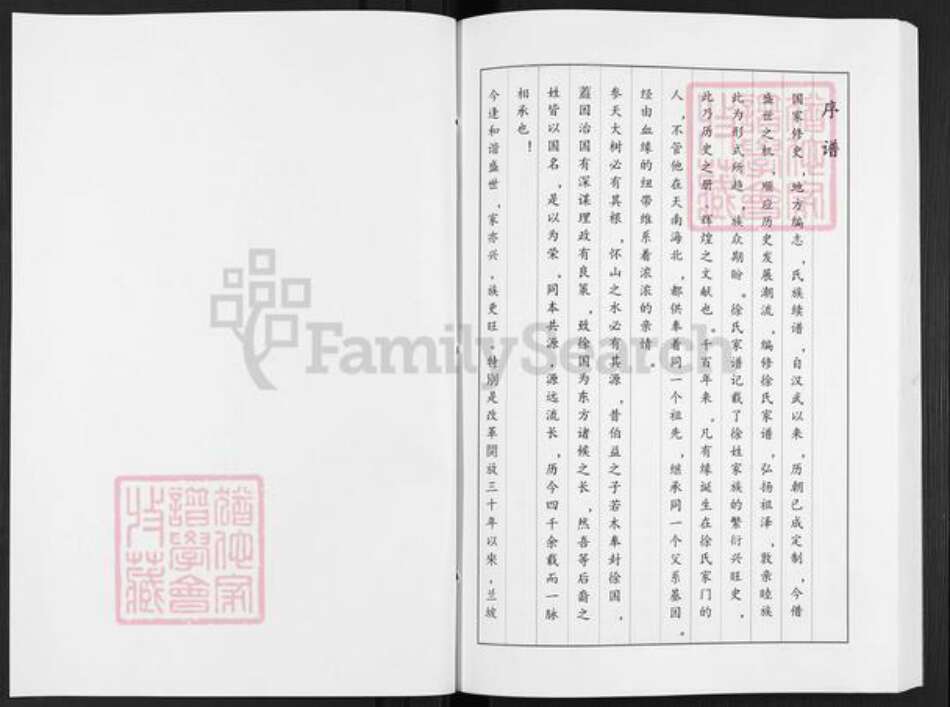 序谱
国家修史，地方编志，氏族续谱，自汉武以来，历朝已成定制，今借
盛世之机，顺应历史发展潮流，编修徐氏家谱，弘扬祖泽，敦亲睦族
此为形式所趋，族众期盼。徐氏家谱记载了徐姓家族的繁衍兴旺史，
此乃历史之册、辉煌之文献也。千百年来。凡有缘诞生在徐氏家门的
人，不管他在天南海北，都供奉着同一个祖先，继承同一个父系基因。
经由血缘的纽带维系着浓浓的亲情。
参天大树必有其根，怀山之水必有其源，昔伯益之子若木奉封徐国，
蓋因治国有深谋理政有良策，致徐国为东方诸候之长，然吾等后裔之
姓皆以国名，是以为荣。同本共源，源远流长，历今四千余载而一脉
相承也！
今逢和谐盛世，家亦兴，族更旺。特别是改革開放三十年以來，兰坡
猶他家
譜學會
收藏
猶他家
譜學會
收藏
FamilySearch